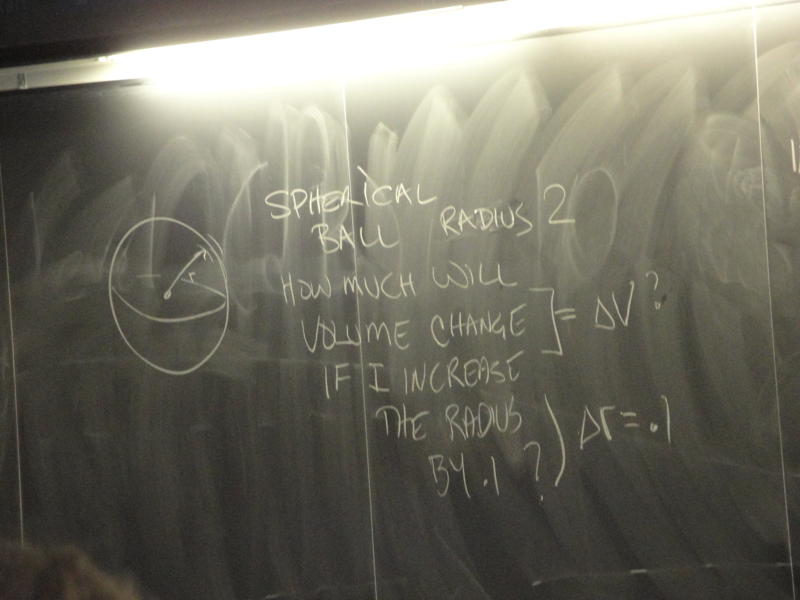 SPHERICAL
BALL RADIUS 2
HOW MUCH WILL
VOLUME CHANGE ] = ΔV?
IF I INCREASE
THE RADIUS ) Δr = .1
BY .1 ?
r